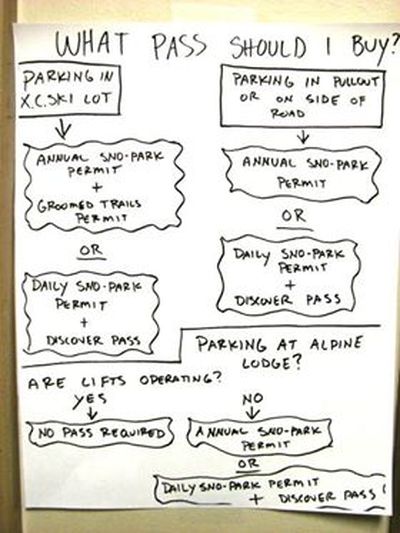 WHAT PASS SHOULD I BUY?
PARKING IN
X.C. SKI LOT
ANNUAL SNO-PARK
PERMIT
+
GROOMED TRAILS
PERMIT
OR
DAILY SNO-PARK
PERMIT
+
DISCOVER PASS
PARKING IN PULLOUT
OR ON SIDE OF
ROAD
ANNUAL SNO-PARK
PERMIT
OR
DAILY SNO-PARK
PERMIT
+
DISCOVER PASS
PARKING AT ALPINE
LODGE?
ARE LIFTS OPERATING?
YES
NO PASS REQUIRED
NO
ANNUAL SNO-PARK
PERMIT
OR
DAILY SNO-PARK PERMIT
+ DISCOVER PASS